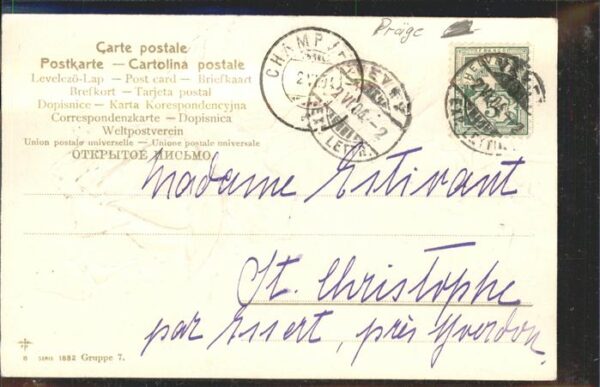 Präge
Carte postale
Postkarte — Cartolina postale
Levelező-Lap — Post card — Briefkaart
Brefkort — Tarjeta postal
Dopisnice — Karta Korespondencyjna
Correspondenzkarte — Dopisnica
Weltpostverein
Union postale universelle — Unione postale universale
ОТКРЫТОЕ ПИСЬМО
CHAMP
VEVEY
LETTR.
Madame Estivant
St. Christophe
par Essert, près Yverdon.
SERIE 1882 Gruppe 7.